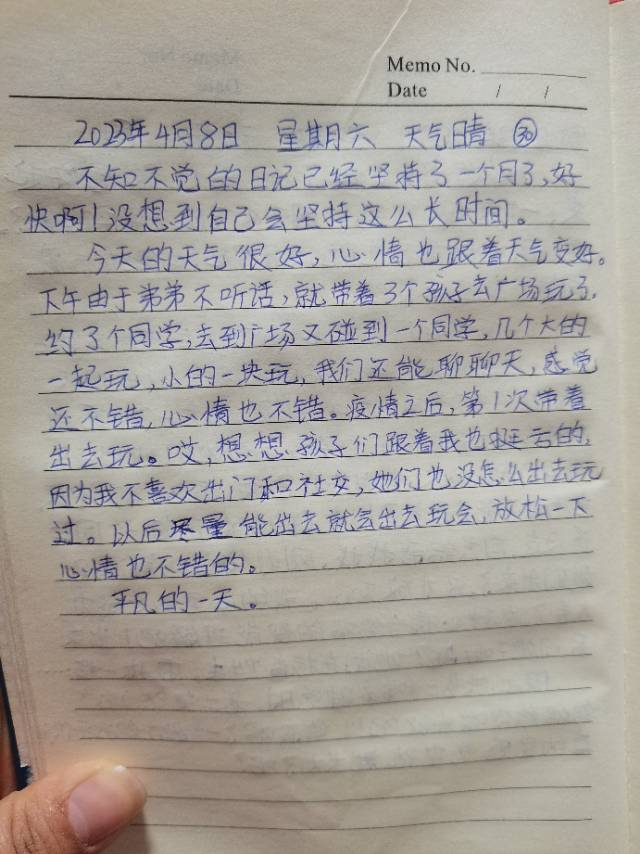 Memo No.
Date / /
2023年4月8日 星期六 天气晴 ㉚
不知不觉的日记已经坚持了一个月了,好
快啊!没想到自己会坚持这么长时间。
今天的天气很好,心情也跟着天气变好。
下午由于弟弟不听话,就带着3个孩子去广场玩了。
约了个同学,去到广场又碰到一个同学,几个大的
一起玩,小的一块玩,我们还能聊聊天,感觉
还不错,心情也不错。疫情之后,第1次带着
出去玩。哎,想想孩子们跟着我也挺云的,
因为我不喜欢出门和社交,她们也没怎么出去玩
过。以后尽量能出去就会出去玩会,放松一下
心情也不错的。
平凡的一天。